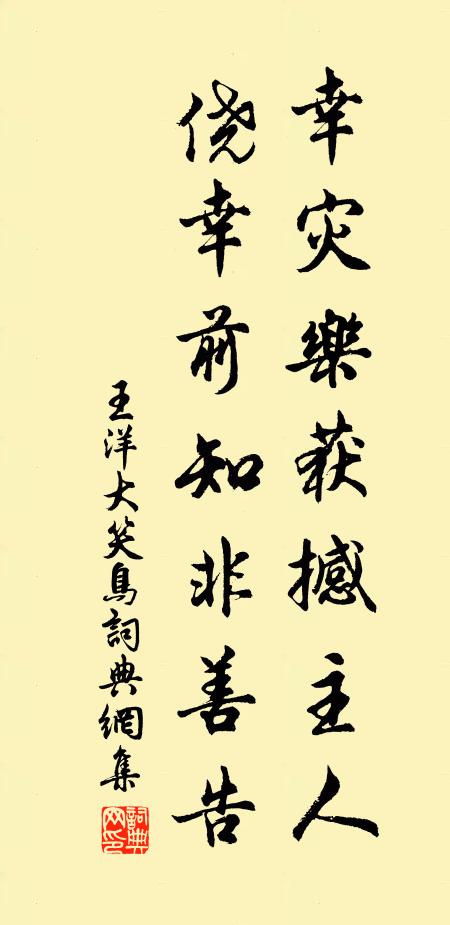 幸灾樂获撼主人
侥幸前知非善告
王洋大笑鳥詞典網集
詞典网印